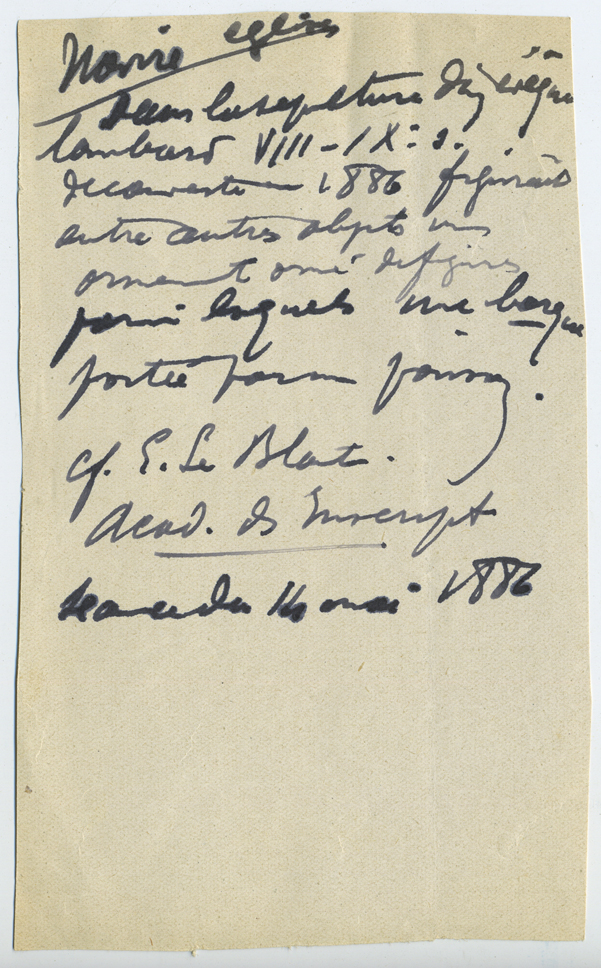 Navire eglises
Dans la sepulture d'un évêque
lombard VIII-IX: s.
decouverte en 1886 figurait
entre autres objets un
ornement orné de figures
parmi lesquels une barque
portée par un poisson.
cf. E. Le Blant.
Acad. ds Inscript
seance du 14 mai 1886